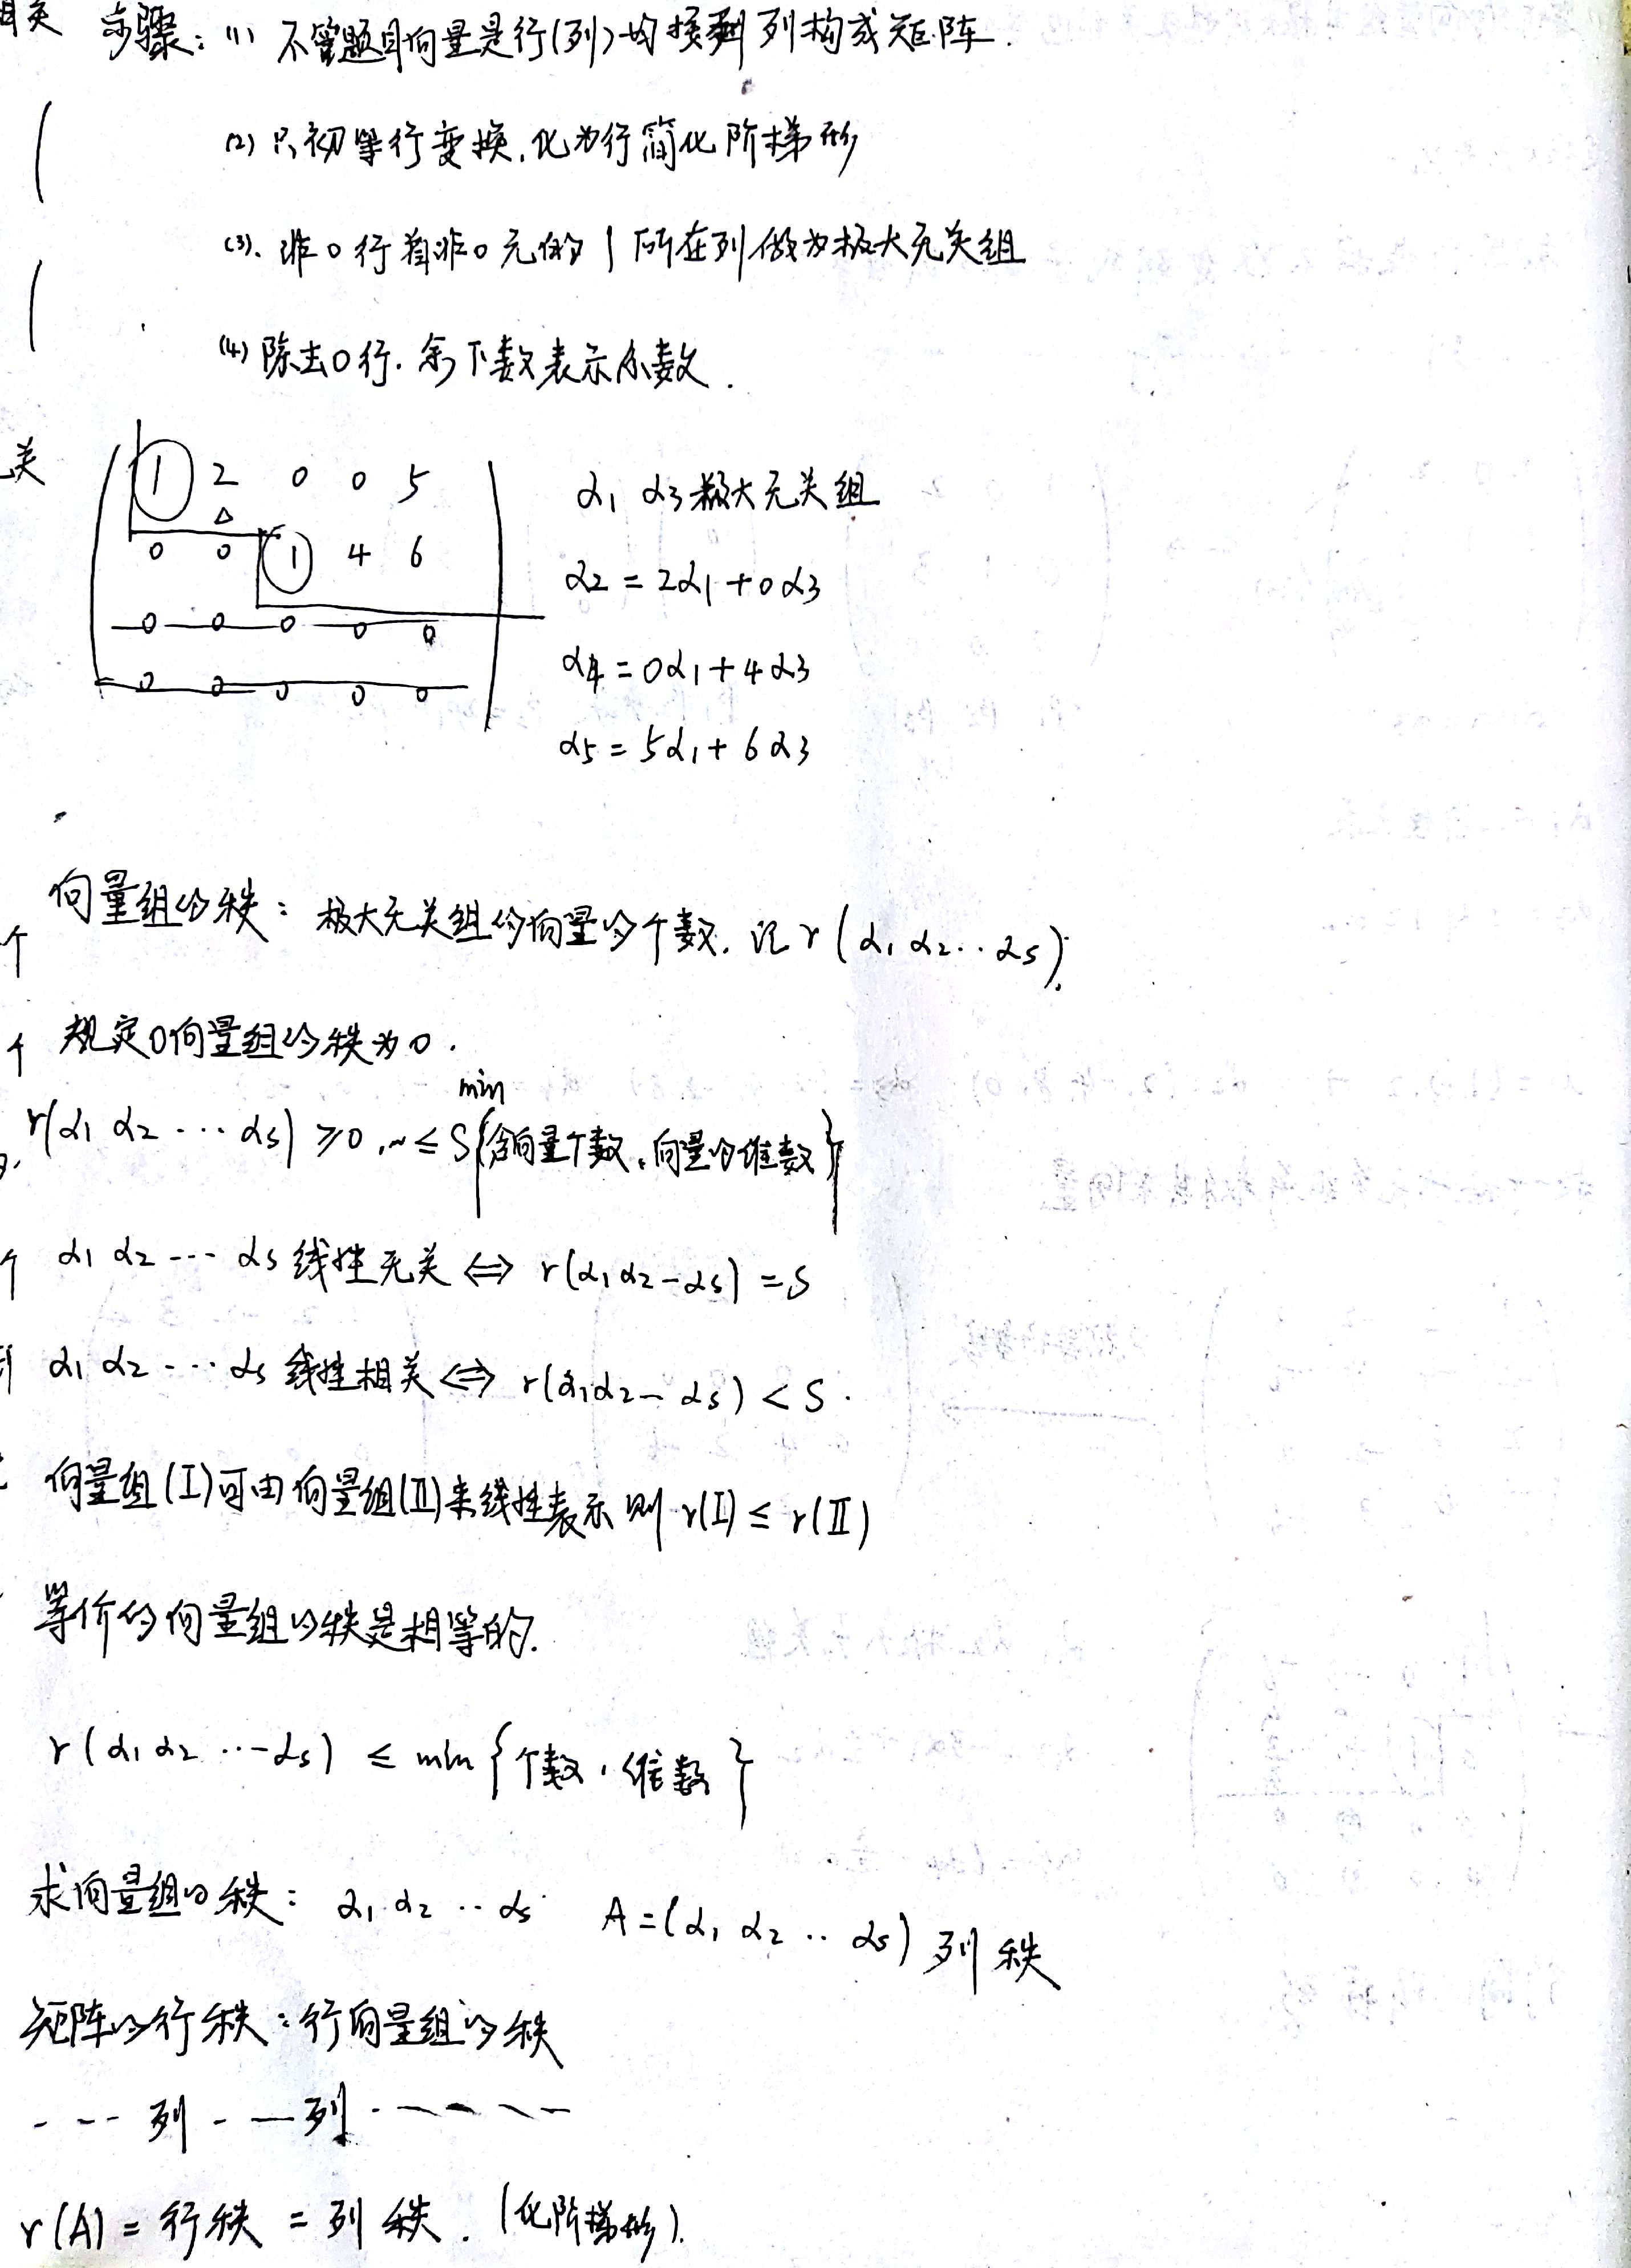 步骤：(1) 不管题目向量是行(列)均按列构成矩阵.
(2) 只初等行变换,化为行简化阶梯形
(3). 非0行首非0元的1所在列做为极大无关组
(4) 除去0行.余下数表示系数.
关
1 2 0 0 5
0 0 1 4 6
0 0 0 0 0
0 0 0 0 0
α1 α3极大无关组
α2 = 2α1 + 0α3
α4 = 0α1 + 4α3
α5 = 5α1 + 6α3
向量组的秩：极大无关组的向量的个数. 记 r(α1 α2 ‥ αs).
个
规定0向量组的秩为0.
个
r(α1 α2 ⋯ αs) ≥0, ~ ≤ S min{含向量个数,向量的维数}
α1 α2 --- αs 线性无关 ⇔ r(α1α2-αs) = S
个
α1 α2 -‥ αs 线性相关 ⇔ r(α1α2-αs) < S.
向量组(I)可由向量组(II)来线性表示 则 r(I) ≤ r(II)
等价的向量组的秩是相等的.
r(α1α2 ‥-αs) ≤ min{个数,维数}
求向量组的秩： α1 α2 ‥ αs A=(α1 α2 ‥ αs) 列秩
矩阵的行秩：行向量组的秩
- -- 列 - — 列 - — — — —
r(A) = 行秩 = 列秩. (化阶梯形).